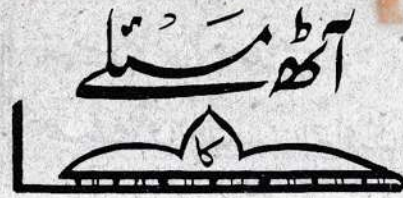 آٹھ مَسئلے
کا